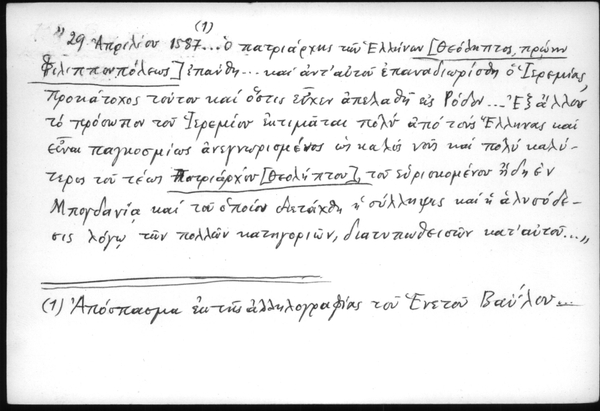 (1)
"29 Ἀπριλίου 1587... Ὁ πατριάρχης τῶν Ἑλλήνων [Θεόληπτος, πρώην
Φιλιππουπόλεως] ἐπαύθη... καί ἀντ' αὐτοῦ ἐπαναδιωρίσθη ὁ Ἰερεμίας,
προκάτοχος τούτου καί ὅστις εἶχεν ἀπελαθῆ εἰς Ρόδον... Ἐξ ἄλλου
τό πρόσωπον τοῦ Ἰερεμίου ἐκτιμᾶται πολύ ἀπό τούς Ἕλληνας καί
εἶναι παγκοσμίως ἀνεγνωρισμένος ὡς καλός νοῦς καί πολύ καλύ-
τερος τοῦ τέως Πατριάρχου [Θεολήπτου], τοῦ εὑρισκομένου ἤδη ἐν
Μπογδανίᾳ καί τοῦ ὁποίου διετάχθη ἡ σύλληψις καί ἡ ἁλυσόδε-
σις λόγῳ τῶν πολλῶν κατηγοριῶν, διατυπωθεισῶν κατ' αὐτοῦ..."
(1) Ἀπόσπασμα ἐκ τῆς ἀλληλογραφίας τοῦ Ἑνετοῦ Βαΐλου...